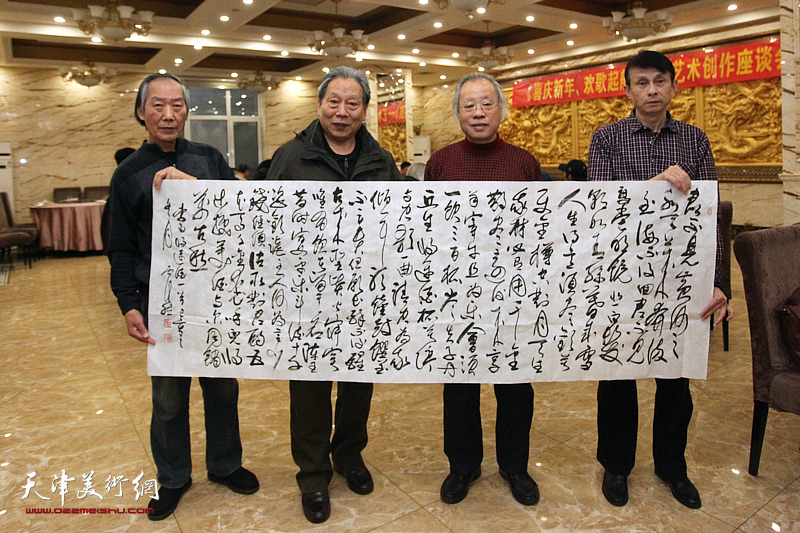 《喜庆新年、欢歌起
艺术创作座谈会
君不见黄河之
水天上来奔流
到海不复回君不见
高堂明镜悲白发
朝如青丝暮成雪
人生得意须尽欢莫
使金樽空对月天生
我材必有用千金
散尽还复来烹羊
宰牛且为乐会须
一饮三百杯岑夫子丹
丘生将进酒杯莫停
与君歌一曲请君为我
倾耳听钟鼓馔玉
不足贵但愿长醉不复醒
古来圣贤皆寂寞
惟有饮者留其名陈王
昔时宴平乐斗酒十千
恣欢谑主人何为言少
钱径须沽取对君酌五
花马千金裘呼儿将
出换美酒与尔同销
万古愁
天津美術網
www.022meishu.com